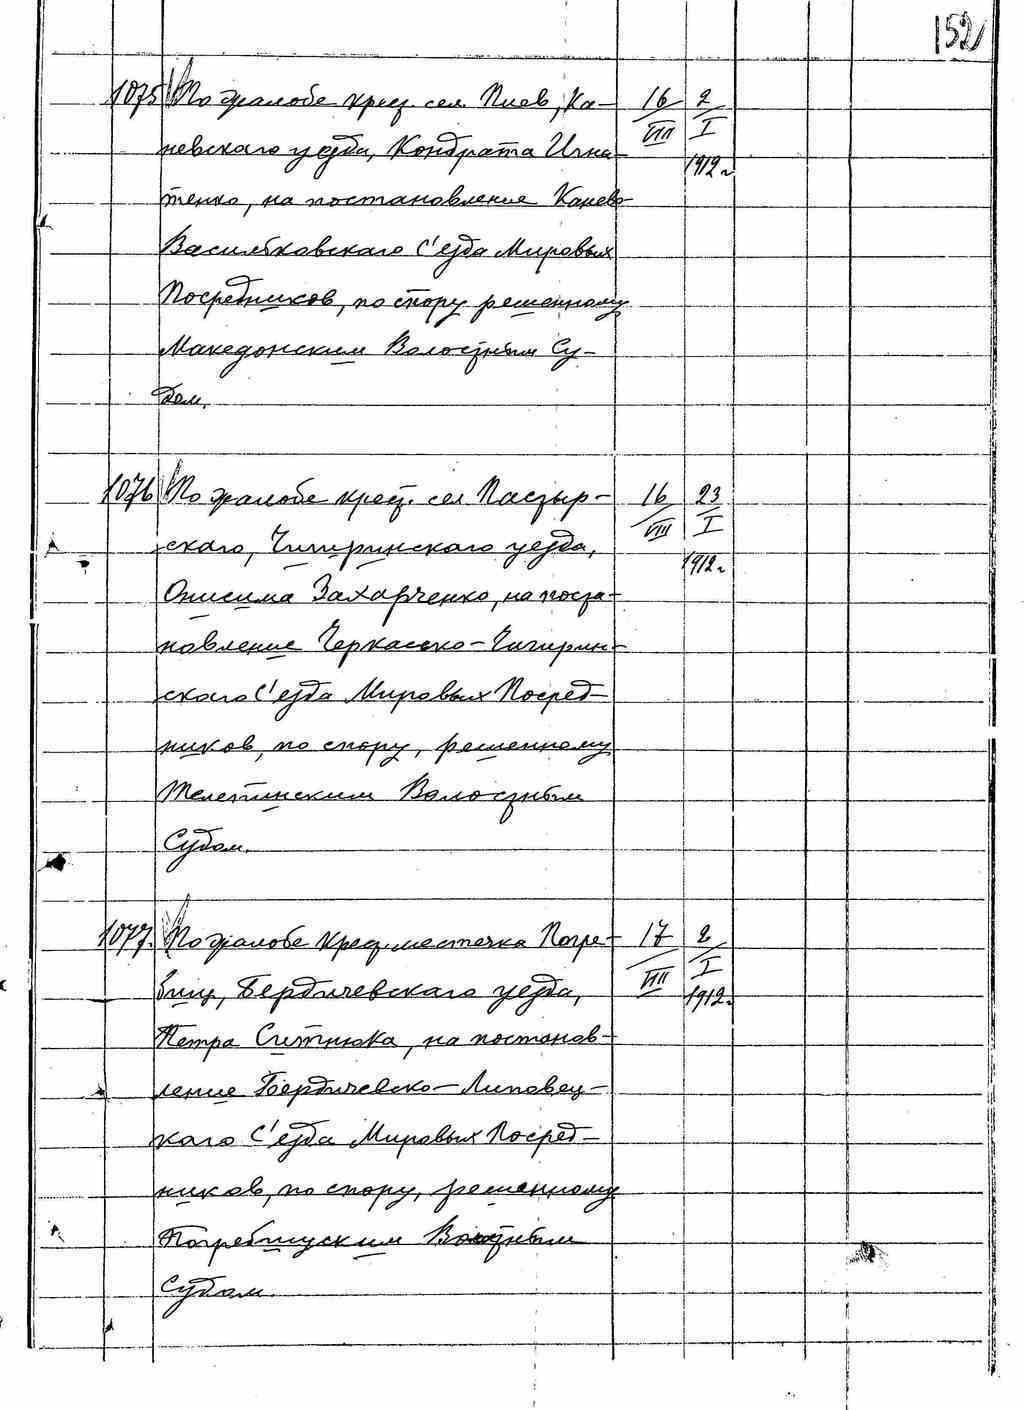 152
1075 По жалобе крест. сел. Пиев, Ка- 16/VIII 2/I 1912 г.
невского уезда, Кондрата Игна-
тенко, на постановление Канев-
Васильковского С'езда Мировых
Посредников, по спору решенному
Македонским Волостным Су-
дом.
1076 По жалобе крест. сел Пастыр- 16/VIII 23/I 1912 г.
ского, Чигиринского уезда,
Онисима Захарченко, на поста-
новление Черкасско-Чигирин-
ского С'езда Мировых Посред-
ников, по спору, решенному
Телепинским Волостным
Судом.
1077. По жалобе крест. местечка Погре- 17/VIII 2/I 1912 г.
бищ, Бердичевского уезда,
Петра Ситнюка, на постанов-
ление Бердичевско-Липовец-
кого С'езда Мировых Посред-
ников, по спору, решенному
Погребищским Волостным
Судом.